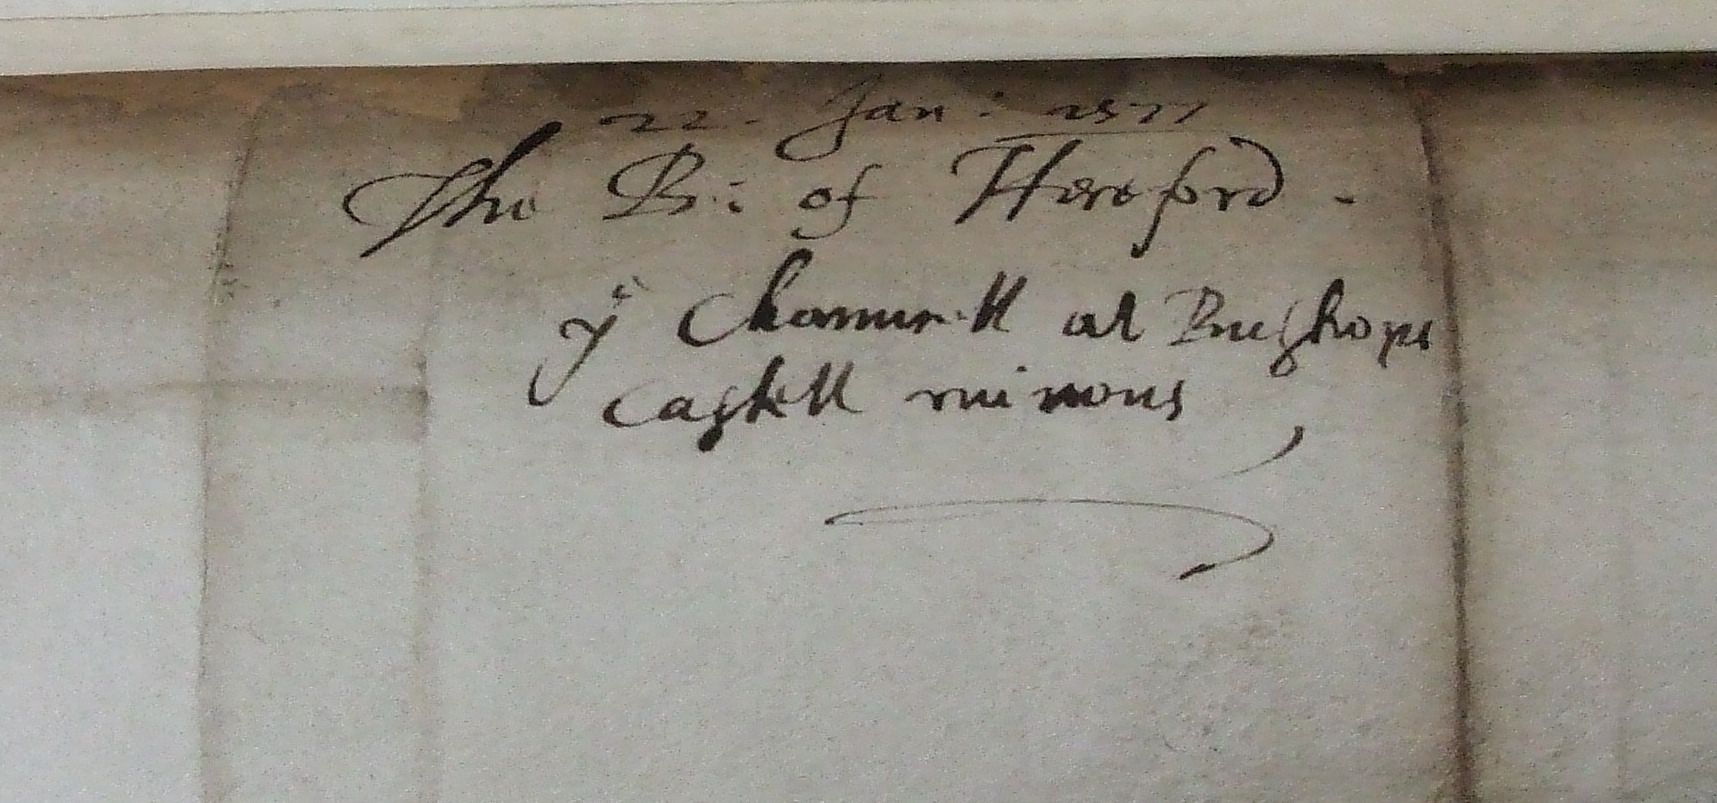 22. Jan: 1577
The B: of Hereford.
yͤ Chauncell at Busshops
Castell ruinous